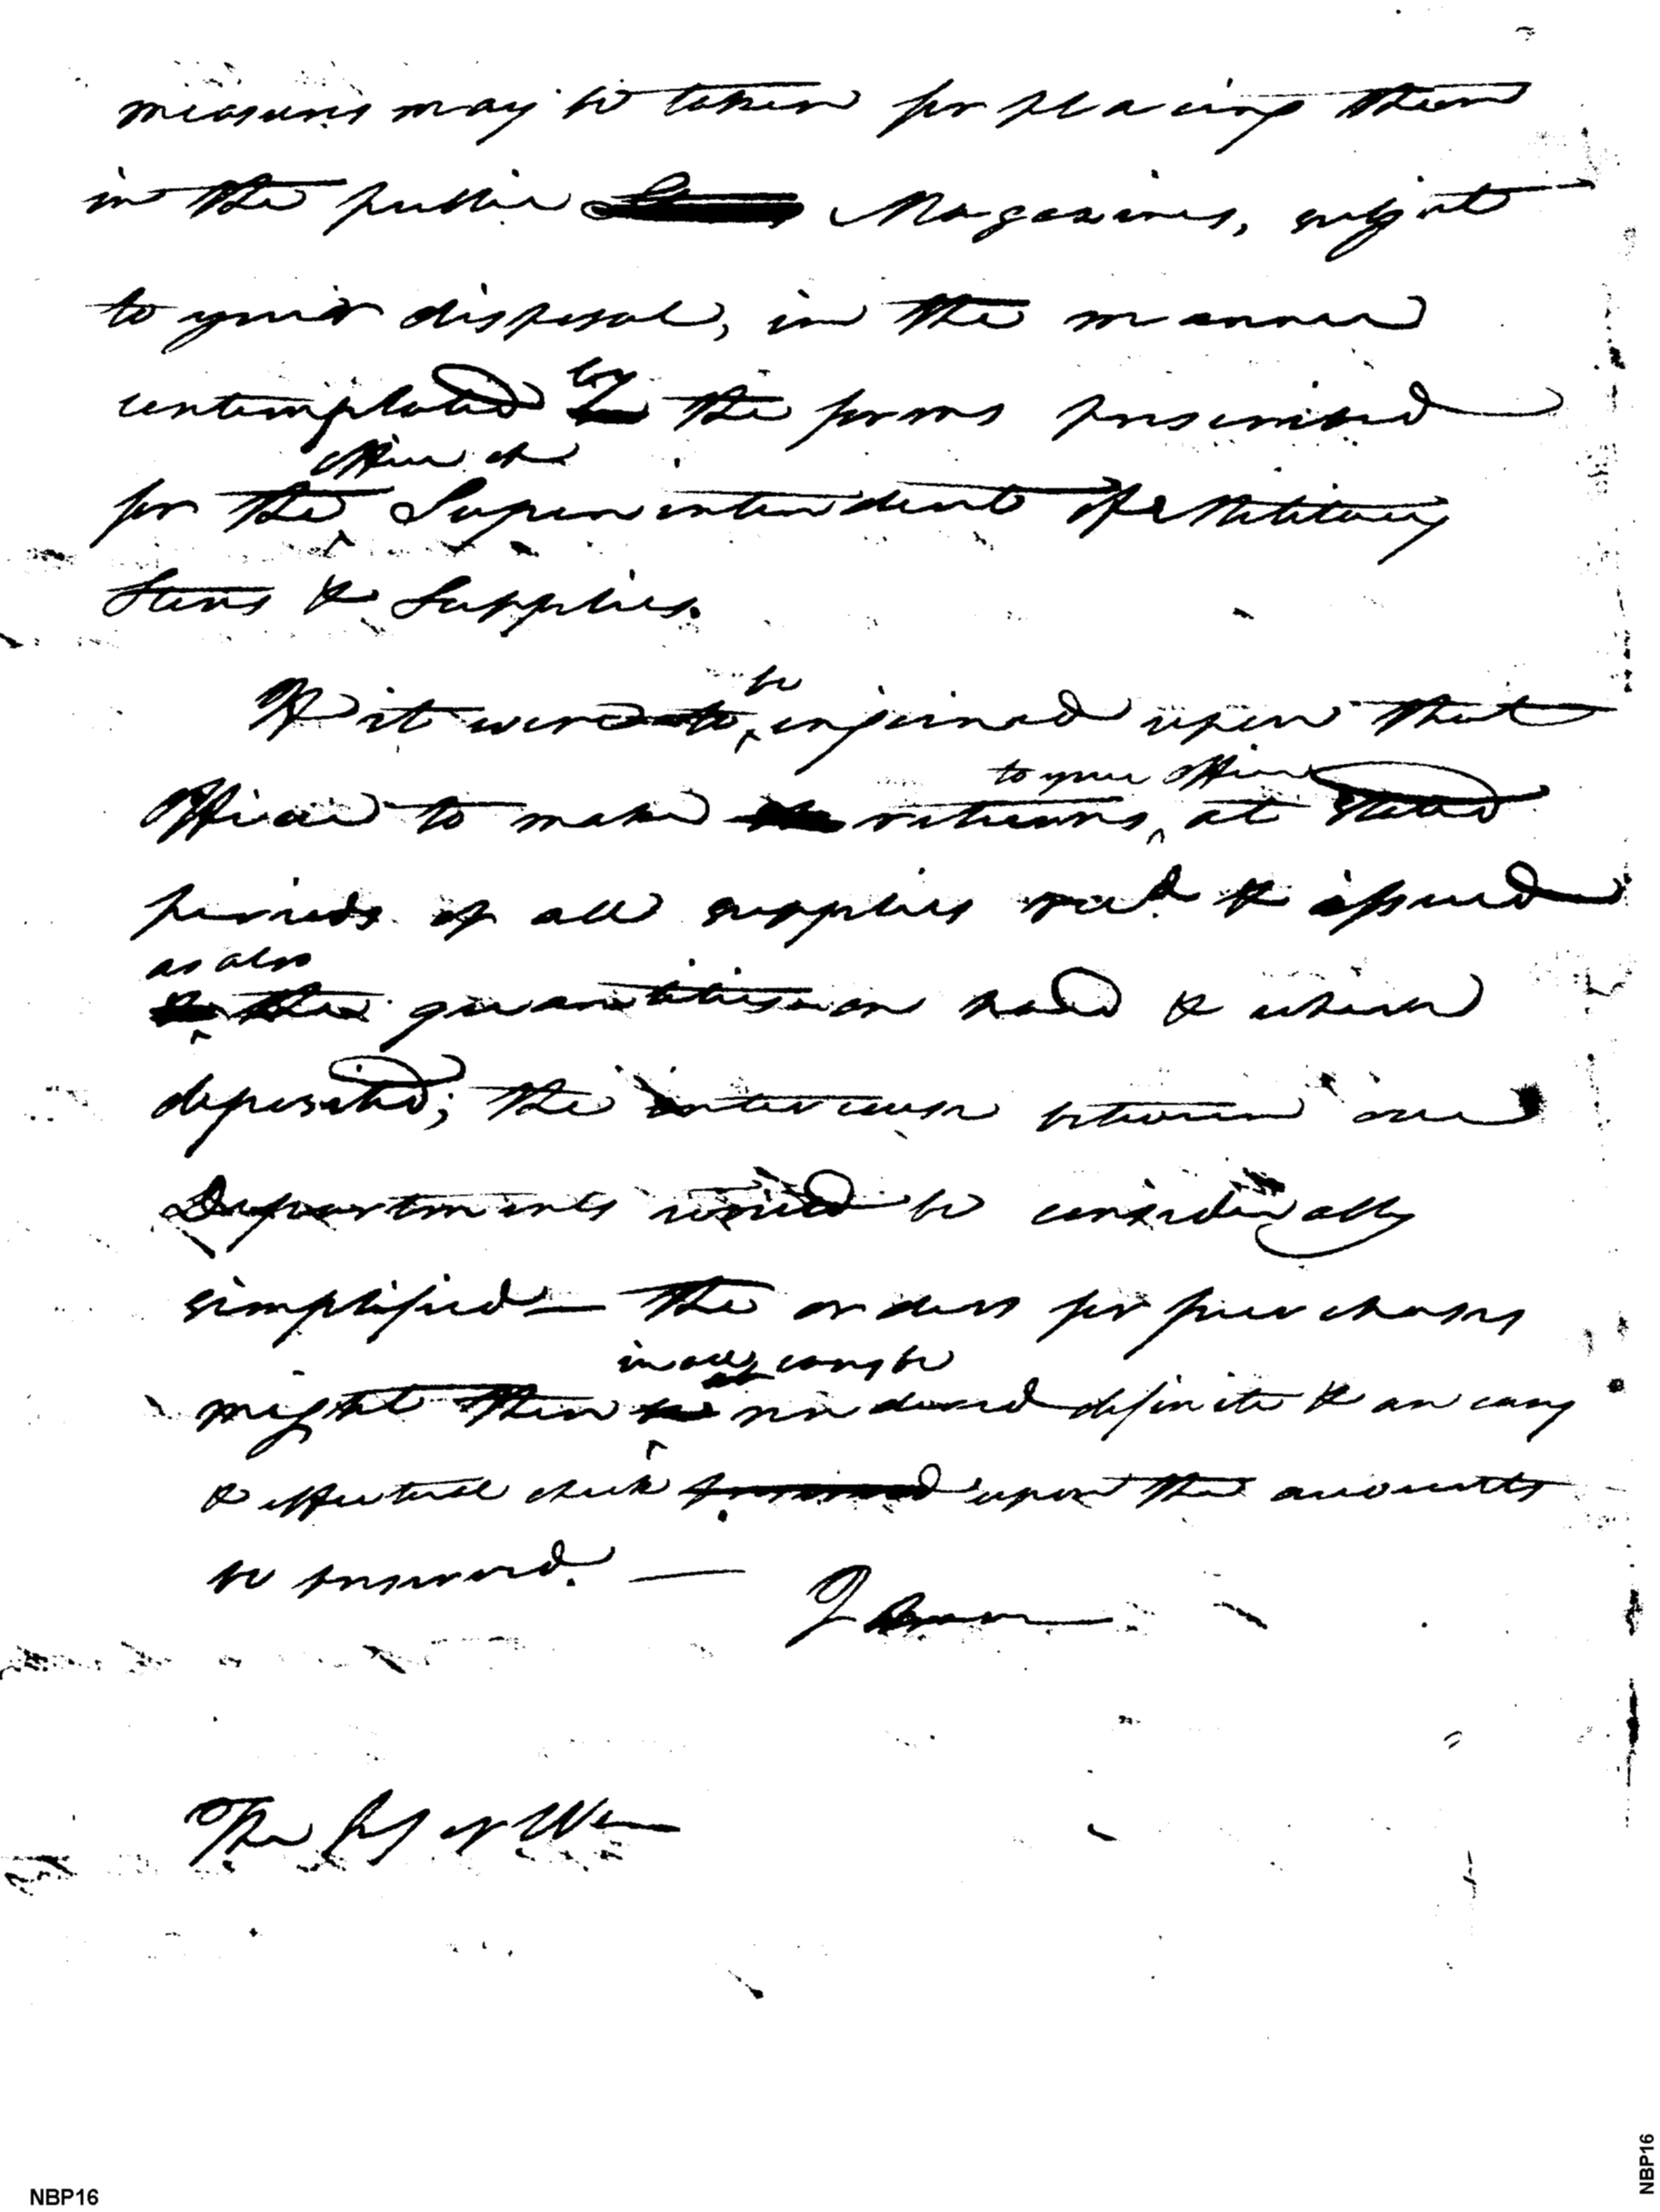 measures may be taken for placing them
in the public Magazines, subject
to your disposal, in the manner
by
contemplated the forms prescribed
office of
for the Superintendent of Military
Stores & Supplies.
be
If it were to enjoined upon that
to your Office
Officer to make returns at stated
periods of all supplies recd & issued
as also
& the quantities on hand & where
deposited; the intercourse between our
Departments would be considerably
simplified — the orders for purchases
in all cases be
might then be rendered definite & an easy
& effectual check preserved upon the accounts
be preserved. —
I am
The Secy of War
NBP16
NBP16